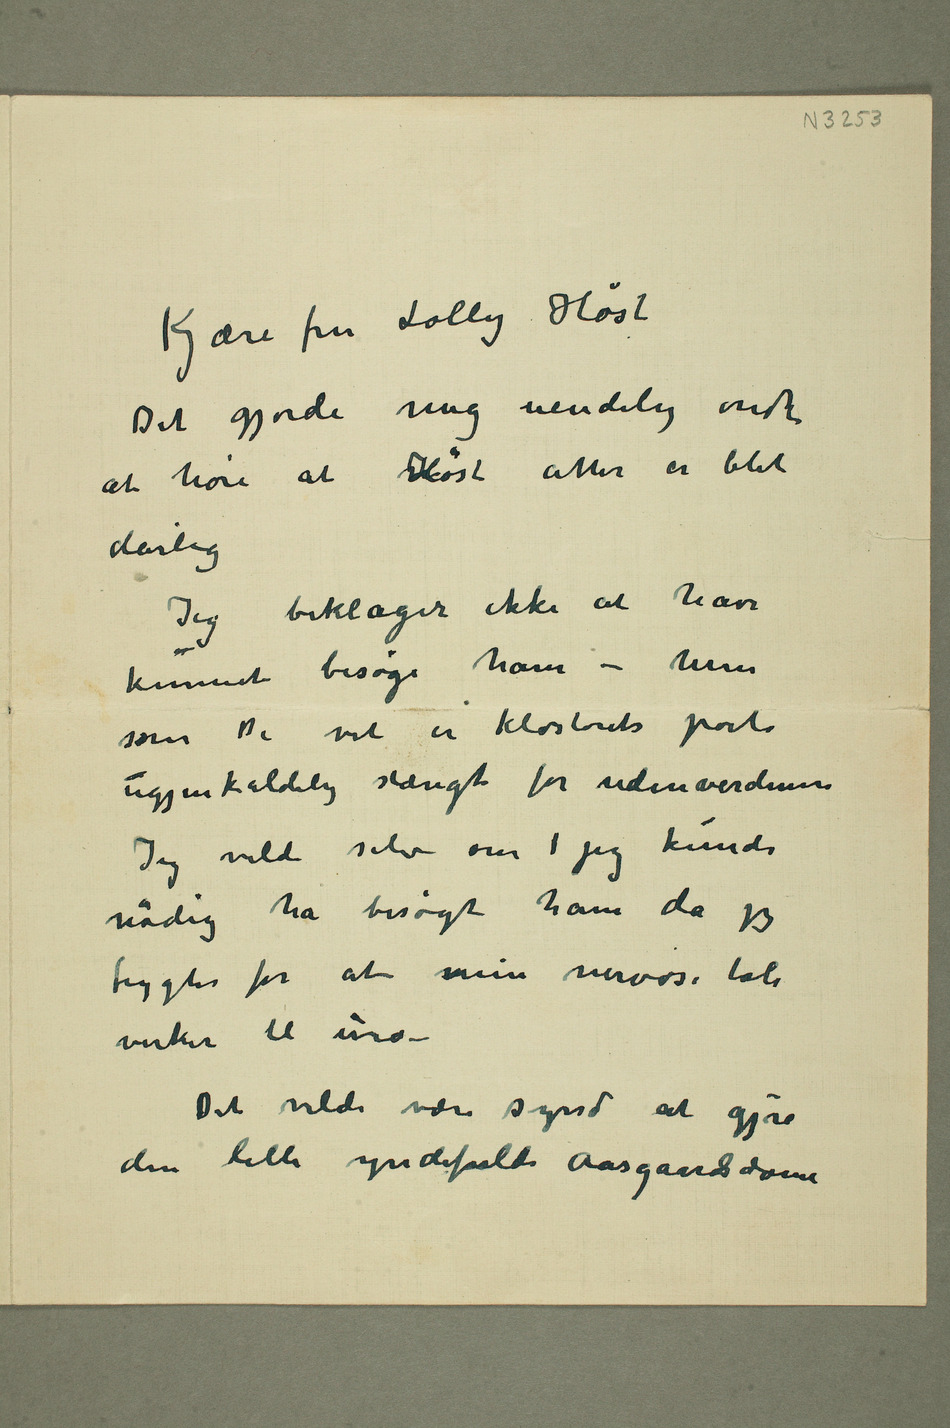 N 3253
Kjære fru Lolly Høst
Det gjorde mig uendelig ondt
at høre at Høst atter er blet
dårlig
Jeg beklager ikke at have
kunnet besøge ham – Men
som De vet er klostrets porte
ugjenkaldelig stængt for udenverdenen
Jeg vilde selv om jeg kunde
nødig ha besøgt ham da jeg
frygter for at min nervøse tale
virker til uro –
Det vilde være synd at gjøre
den lille yndefulde Aasgaards